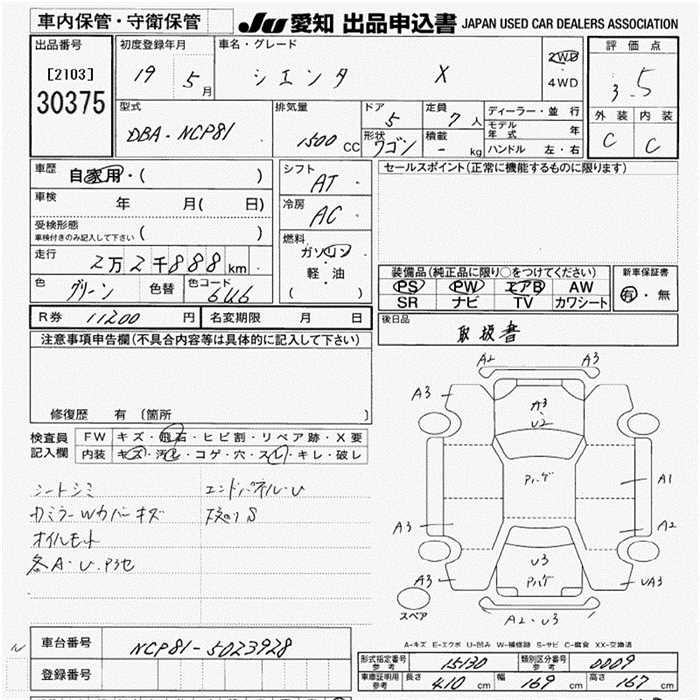 車内保管・守衛保管 JU 愛知 出品申込書 JAPAN USED CAR DEALERS ASSOCIATION
出品番号 初度登録年月 車名・グレード 2WD 評価点
[2103] 19 5月 シエンタ X 4WD 3.5
30375
型式 排気量 ドア 定員 ディーラー・並行 外装 内装
DBA-NCP81 1500 CC 5 7人 モデル年式 年 C C
形状 ワゴン 積載 - kg ハンドル 左・右
車歴 自家用・( ) シフト AT セールスポイント(正常に機能するものに限ります)
車検 年 月( 日) 冷房 AC
受検形態
車検付きのみ記入して下さい ( ) 燃料
走行 2万2千888km ガソリン 装備品(純正品に限り○をつけてください) 新車保証書
色 グリーン 色替 色コード 6U6 軽・油 PS PW エアB AW 有・無
( ) SR ナビ TV カワシート
R券 11200 円 名変期限 月 日 後日品
取扱書
注意事項申告欄(不具合内容等は具体的に記入して下さい)
修復歴 有 〔箇所 〕
検査員 FW キズ・飛石・ヒビ割・リペア跡・X要
記入欄 内装 キズ・汚れ・コゲ・穴・スレ・キレ・破レ
シートシミ エンドパネル・U
カミラーWカバーキズ
オイルモレ
各A・U P3セ
A2 A3
A3 A3
U2
A1
A3 A2
U3
A3 UA3
スペア A2・U3
A-キズ E-エクボ U-凹み W-補修跡 S-サビ C-腐食 XX-交換済
車台番号 NCP81-5023928
登録番号
形式指定番号 参考 15130 類別区分番号 参考 0009
車車証明用 参考 長さ 410 cm 幅 169 cm 高さ 167 cm